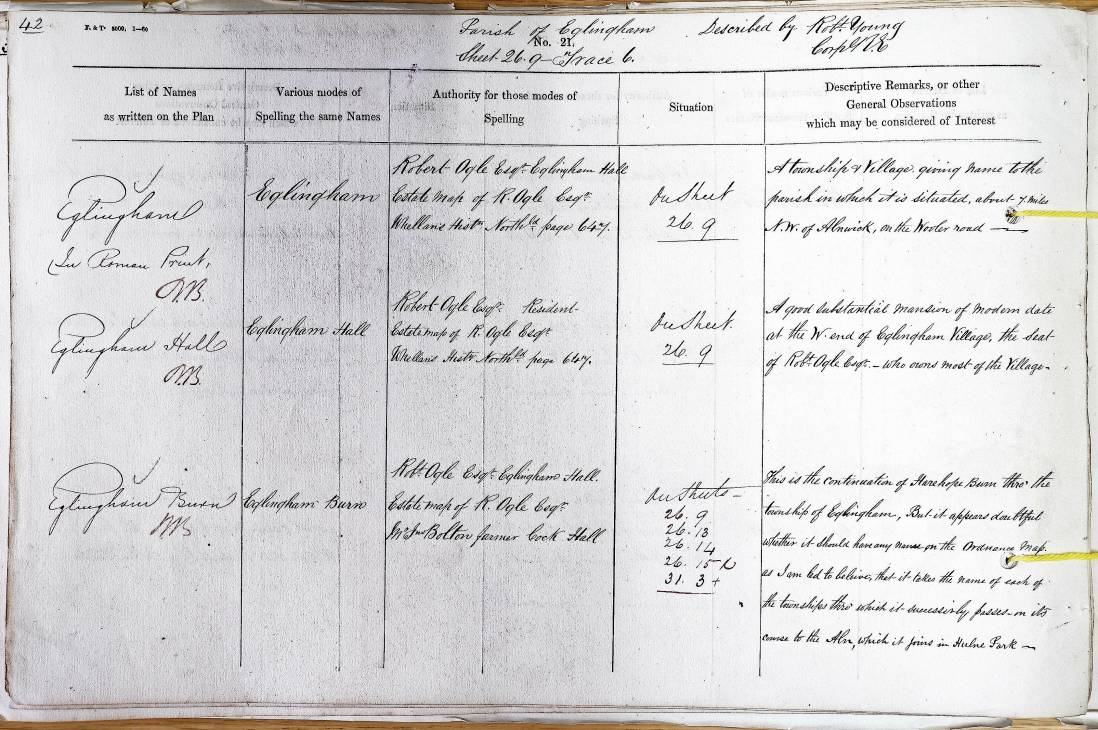 42
F. & T. 5000. 1—60
Parish of Eglingham
No. 21.
Sheet 26.9 Trace 6.
Described by Robt. Young
Corpl. R.E
List of Names
as written on the Plan
Various modes of
Spelling the same Names
Authority for those modes of
Spelling
Situation
Descriptive Remarks, or other
General Observations
which may be considered of Interest
Eglingham
In Roman Print,
Eglingham
Robert Ogle Esqr. Eglingham Hall
Estate Map of R. Ogle Esqr.
Whellans Histy. Northld. page 647.
On Sheet
26. 9
A township & Village, giving name to the
parish in which it is situated, about 7 miles
N.W. of Alnwick, on the Wooler road —
Eglingham Hall
Eglingham Hall
Robert Ogle Esqr. Resident
Estate map of R. Ogle Esqr.
Whellans Histy. Northld. page 647.
On Sheet.
26. 9
A good substantial mansion of modern date
at the W. end of Eglingham Village, the seat
of Robt. Ogle Esqr. – who owns most of the Village –
Eglingham Burn
Eglingham Burn
Robt. Ogle Esqr. Eglingham Hall.
Estate map of R. Ogle Esqr.
Mr. Jno. Bolton farmer Cock Hall
On Sheets –
26. 9
26. 13
26. 14
26. 15
31. 3 +
This is the continuation of Harehope Burn thro' the
township of Eglingham, But it appears doubtful
whether it should have any name on the Ordnance Map.
as I am led to beleive, that it takes the name of each of
the townships thro' which it successivly passes on its
course to the Aln, which it joins in Hulne Park —